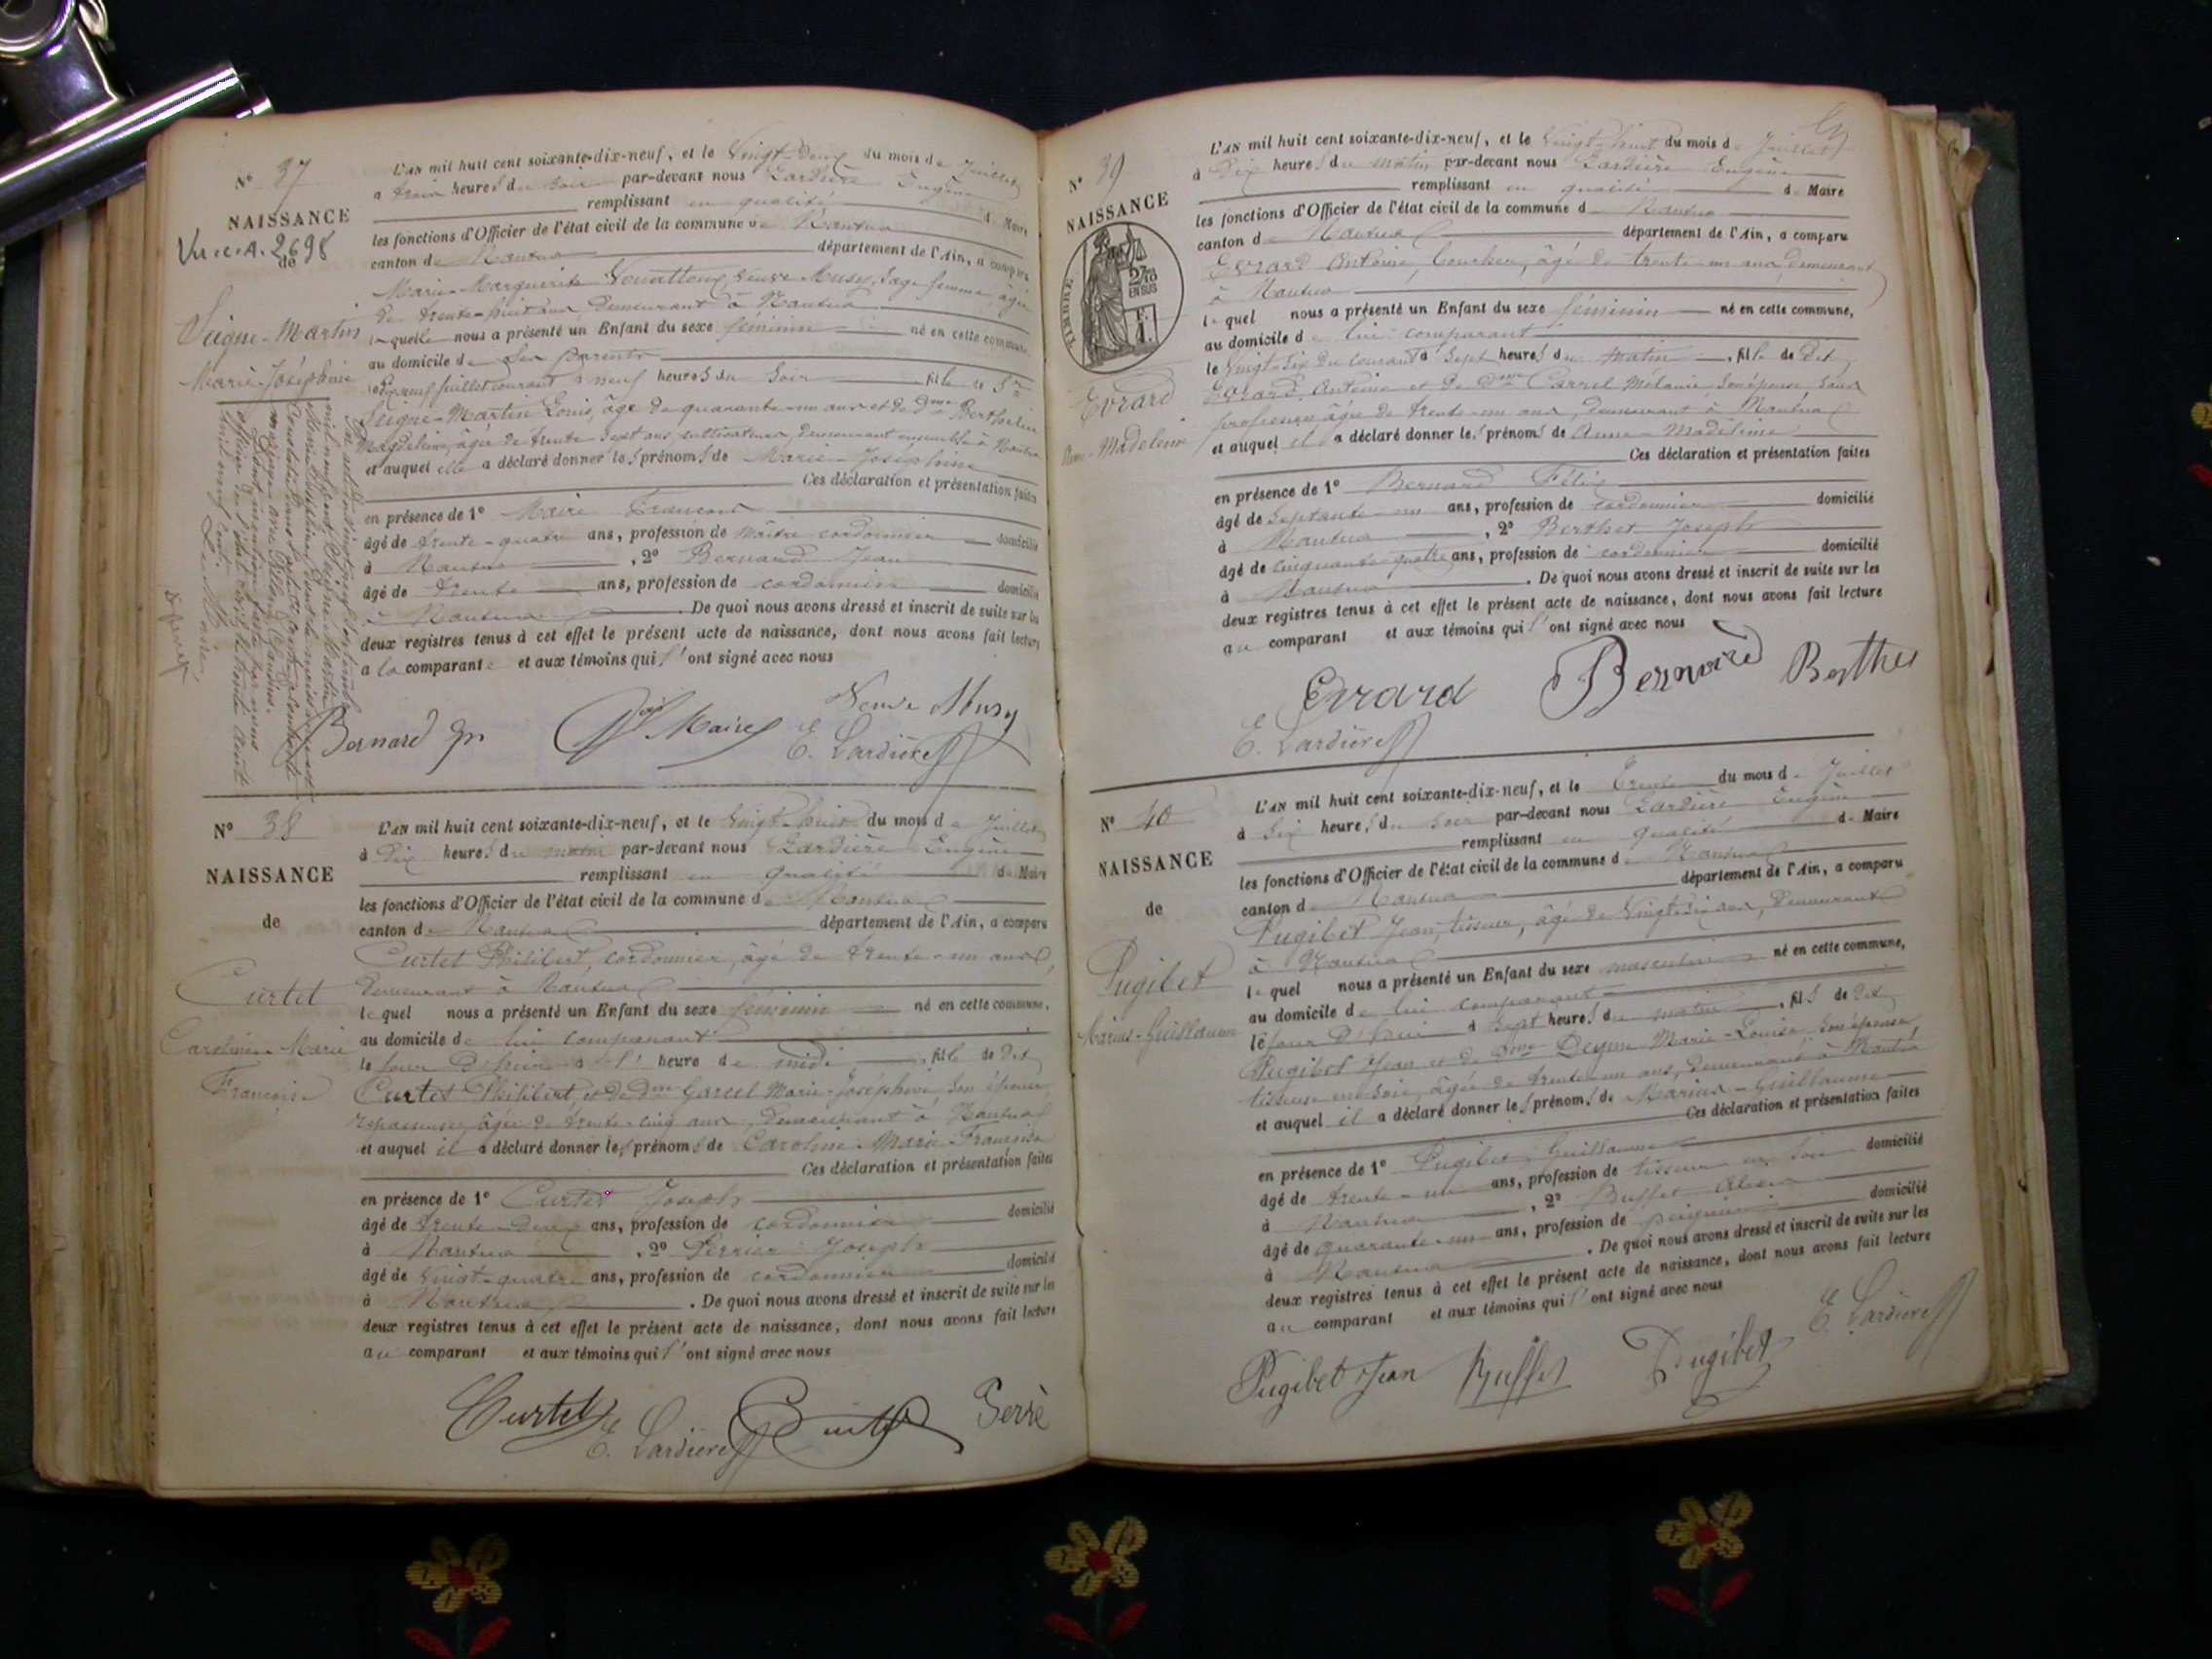 N° 37
NAISSANCE
Vu.c.A. 2698
de
Seigne-Martin
Marie-Joséphine
L'AN mil huit cent soixante-dix-neuf, et le Vingt-deux du mois de Juillet
à trois heures du soir par-devant nous Lardière Eugène
remplissant en qualité de Maire
les fonctions d'Officier de l'état civil de la commune de Nantua
canton de Nantua département de l'Ain, a comparu
Marie-Marguerite veuve Musy, sage femme, âgée
de trente-huit ans demeurant à Nantua
laquelle nous a présenté un Enfant du sexe féminin né en cette commune,
au domicile de ses parents
le dix neuf juillet courant à neuf heures du soir fille de Sr
Seigne-Martin Louis, âgé de quarante-un ans et de dme Berthelin
Magdeleine, âgée de trente-sept ans, cultivateurs, demeurant ensemble à Nantua
et auquel elle a déclaré donner les prénoms de Marie-Joséphine
Ces déclaration et présentation faites
en présence de 1° Maire François
âgé de trente-quatre ans, profession de maître cordonnier domicilié
à Nantua, 2° Bernard Jean
âgé de trente ans, profession de cordonnier domicilié
à Nantua. De quoi nous avons dressé et inscrit de suite sur les
deux registres tenus à cet effet le présent acte de naissance, dont nous avons fait lecture
a la comparante et aux témoins qui l'ont signé avec nous
Veuve Musy
Bernard Jn Maire E. Lardière
N° 38
NAISSANCE
de
Curtet
Caroline-Marie
Françoise
L'AN mil huit cent soixante-dix-neuf, et le Vingt-huit du mois de Juillet
à Dix heures du matin par-devant nous Lardière Eugène
remplissant en qualité de Maire
les fonctions d'Officier de l'état civil de la commune de Nantua
canton de Nantua département de l'Ain, a comparu
Curtet Philibert, cordonnier, âgé de trente-un ans,
demeurant à Nantua
lequel nous a présenté un Enfant du sexe féminin né en cette commune,
au domicile de lui comparant
le jour d'hier à l'heure de midi, fille de dit
Curtet Philibert, et de dme Garcel Marie-Joséphine, son épouse,
repasseuse, âgée de trente-cinq ans, demeurant à Nantua
et auquel il a déclaré donner les prénoms de Caroline-Marie-Françoise
Ces déclaration et présentation faites
en présence de 1° Curtet Joseph
âgé de trente-deux ans, profession de cordonnier domicilié
à Nantua, 2° Perrier Joseph
âgé de vingt-quatre ans, profession de cordonnier domicilié
à Nantua. De quoi nous avons dressé et inscrit de suite sur les
deux registres tenus à cet effet le présent acte de naissance, dont nous avons fait lecture
au comparant et aux témoins qui l'ont signé avec nous
Curtet E. Lardière
N° 39
NAISSANCE
TIMBRE
2/10 EN SUS
Evrard
Anne-Madeleine
L'AN mil huit cent soixante-dix-neuf, et le Vingt-huit du mois de Juillet
à Dix heures du matin par-devant nous Lardière Eugène
remplissant en qualité de Maire
les fonctions d'Officier de l'état civil de la commune de Nantua
canton de Nantua département de l'Ain, a comparu
Evrard Antoine, boucher, âgé de trente-un ans demeurant
à Nantua
lequel nous a présenté un Enfant du sexe féminin né en cette commune,
au domicile de lui comparant
le Vingt-six du courant à sept heures du matin, fille de dit
Evrard Antoine et de dme Carrel Mélanie son épouse, sans
profession, âgée de trente-un ans, demeurant à Nantua
et auquel il a déclaré donner les prénoms de Anne-Madeleine
Ces déclaration et présentation faites
en présence de 1° Bernard Félix
âgé de septante-un ans, profession de cordonnier domicilié
à Nantua, 2° Berthet Joseph
âgé de cinquante-quatre ans, profession de cordonnier domicilié
à Nantua. De quoi nous avons dressé et inscrit de suite sur les
deux registres tenus à cet effet le présent acte de naissance, dont nous avons fait lecture
au comparant et aux témoins qui l'ont signé avec nous
Evrard Bernard Berthet
E. Lardière
N° 40
NAISSANCE
de
Pugibet
Marius-Guillaume
L'AN mil huit cent soixante-dix-neuf, et le Trente du mois de Juillet
à Six heures du soir par-devant nous Lardière Eugène
remplissant en qualité de Maire
les fonctions d'Officier de l'état civil de la commune de Nantua
canton de Nantua département de l'Ain, a comparu
Pugibet Jean, tisseur, âgé de Vingt-six ans, demeurant
à Nantua
lequel nous a présenté un Enfant du sexe masculin né en cette commune,
au domicile de lui comparant
le jour d'hui à sept heures du matin, fils de dit
Pugibet Jean et de dme Marie-Louise son épouse,
tisseuse en soie, âgée de trente-un ans, demeurant à Nantua
et auquel il a déclaré donner les prénoms de Marius-Guillaume
Ces déclaration et présentation faites
en présence de 1° Pugibet Guillaume
âgé de trente-un ans, profession de tisseur en soie domicilié
à Nantua, 2° Buffet
âgé de quarante-un ans, profession de domicilié
à Nantua. De quoi nous avons dressé et inscrit de suite sur les
deux registres tenus à cet effet le présent acte de naissance, dont nous avons fait lecture
au comparant et aux témoins qui l'ont signé avec nous
E. Lardière
Pugibet Jean Buffet Pugibet